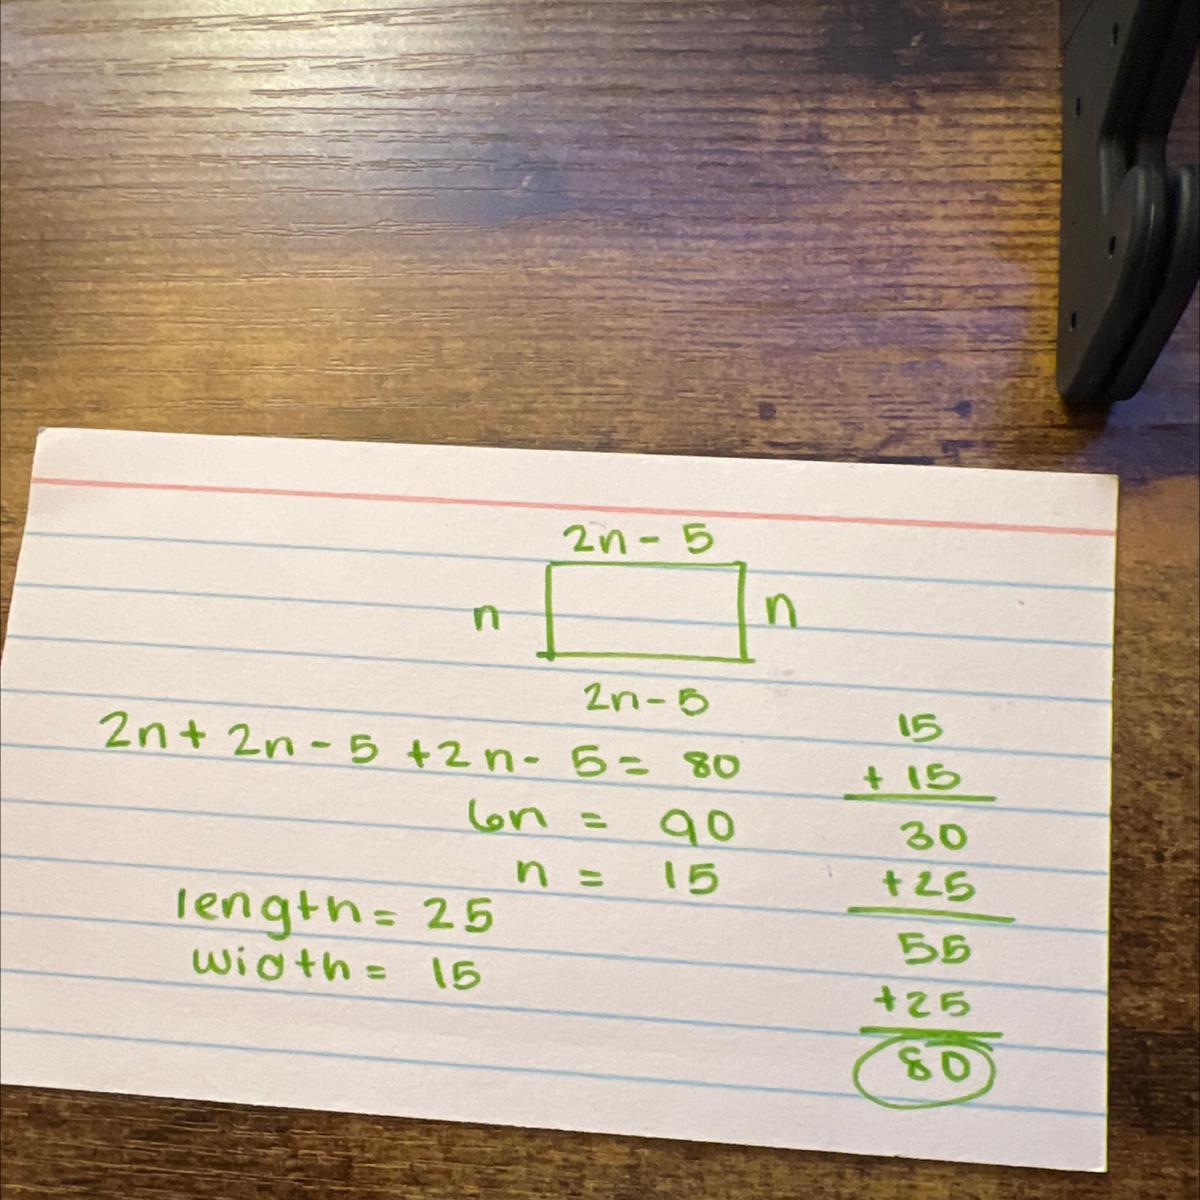 2n - 5
n
n
2n - 5
2n + 2n - 5 + 2n - 5 = 80
6n = 90
n = 15
length = 25
width = 15
15
+ 15
30
+25
55
+25
80